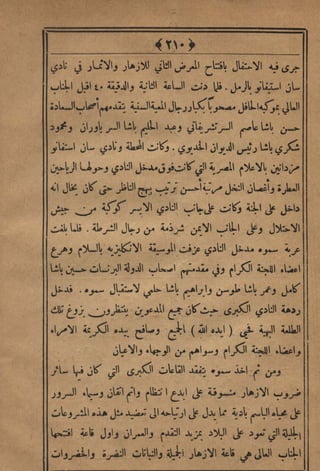 ﴿ ٢١٠ ﴾
جرى فيه الاحتفال بافتتاح المعرض الثاني للازهار والاثمار في نادي
سان استيفانو بالرمل. فلما دنت الساعة الثانية والدقيقة ٤٠ اقبل الجناب
العالي بموكبه الحافل مصحوباً بكبار رجال المعية السنية يتقدمهم أصحاب السعادة
حسن باشا عاصم السر تشريفاتي وعبد الحليم باشا السر ياوران ومحمود
شكري باشا رئيس الديوان الخديوي. وكانت المحطة ونادي سان استفانو
مزدانين بالاعلام المصرية التي كانت فوق مدخل النادي وحولها الرياحين
العطرة وأغصان النخل مرتبة أحسن ترتيب يبهج الناظر حتى كان يخال انه
داخل على الجنة وكانت على جانب النادي الايسر كوكبة من جيش
الاحتلال وعلى الجانب الايمن شرذمة من رجال الشرطة. فلما بلغت
عربة سموه مدخل النادي عزفت الموسيقة الانكليزيه بالسلام وهرع
اعضاء اللجنة الكرام وفي مقدمتهم اصحاب الدولة البرنسات حسين باشا
كامل وعمر باشا طوسن وابراهيم باشا حلمي لاستقبال سموه. فدخل
ردهة النادي الكبرى حيث كان جميع المدعوين ينتظرون بزوغ تلك
الطلعة البهية فحيى (ايده الله) الجميع وصافح بيده الكريمة الامراء
واعضاء اللجنة الكرام وسواهم من الوجهاء والاعيان
ومن ثم اخذ سموه يتفقد القاعات الكبرى التي كان فيها سائر
ضروب الازهار منسوقة على ابدع انتظام واتم اتقان وسيماء السرور
على محياه الباسم بادية مما يدل على ارتياحه الى تعضيد مثل هذه المشروعات
الجليلة التي تعود على البلاد بمزيد التقدم والعمران واول قاعة افتتحها
الجناب العالي هي قاعة الازهار الجميلة والنباتات النضرة والخضروات